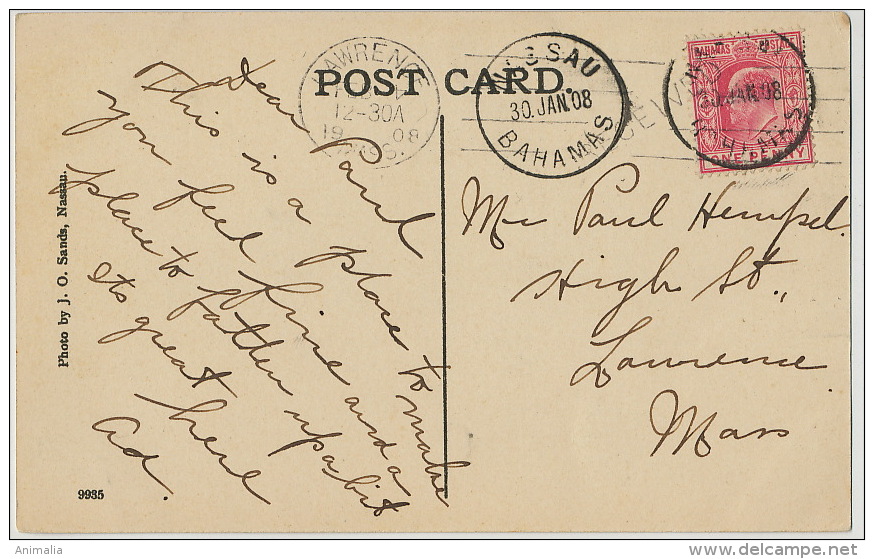 POST CARD.
LAWRENCE
12-30A
19 08
MASS.
NASSAU
30 JAN 08
BAHAMAS
30 JAN 08
BAHAMAS POSTAGE
ONE PENNY
Dear Paul
This is a place to make
you feel fine and a
place to fatten up a bit
Its great here
Ad.
Mr Paul Hempel.
High St.,
Lawrence
Mass
Photo by J. O. Sands, Nassau.
9935
Animalia
delcampe.net